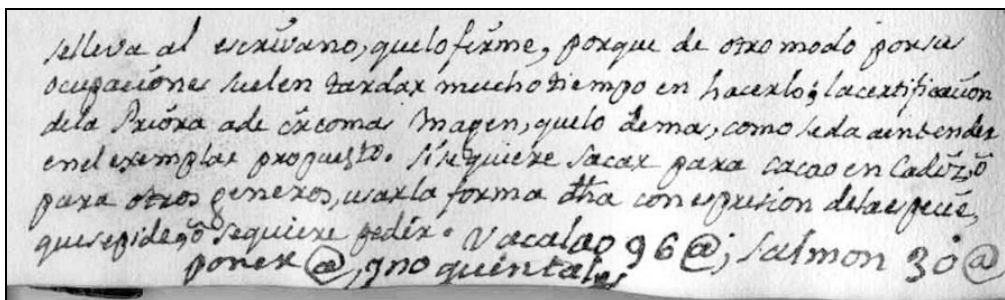 selleva al escrivano, quelo firme, porque de otro modo porsus
ocupaciones suelen tardar mucho tiempo en hacerlo; lacertificacion
dela Priora ade ir comas Margen, quelo demas, como seda aentender
enel exemplar propuesto. Si se quiere sacar para cacao en Cadiz, ô
para otros generos, usar la forma dha con expresion dela especie,
quesepide, ô sequiere pedir. Vacalao 96 @; Salmon 30 @
poner @, y no quintales